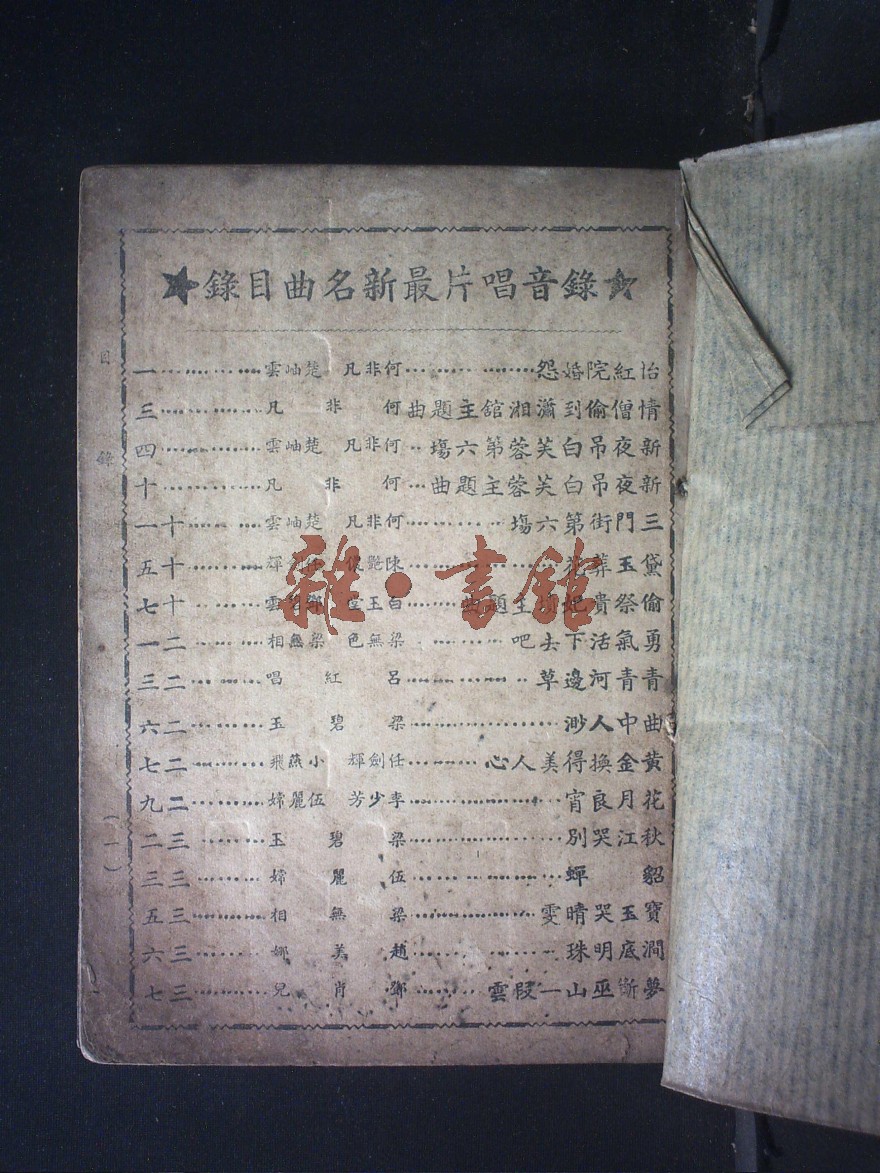 ★錄音唱片最新名曲目錄★
怡紅院婚怨……何非凡 楚岫雲……一
情僧偷到瀟湘舘主題曲 何非凡……三
新夜吊白芙蓉第六塲…何非凡 楚岫雲……四
新夜吊白芙蓉主題曲…何非凡……十
三門街第六塲……何非凡 楚岫雲……十一
黛玉葬花……陳艷儂 任劍輝……十五
偷祭貴妃墳主題曲……白玉堂 鄧碧雲……十七
勇氣活下去吧……梁無色 梁無相……二一
青青河邊草……呂紅唱……二三
曲中人渺……梁碧玉……二六
黃金換得美人心……任劍輝 小燕飛……二七
花月良宵……李少芳 伍麗嫦……二九
秋江哭別……梁碧玉……三二
貂蟬……伍麗嫦……三三
寶玉哭晴雯……梁無相……三五
澗底明珠……趙美娜……三六
夢斷巫山一段雲……鄧肖兒……三七
目錄
(一)
雜·書舘